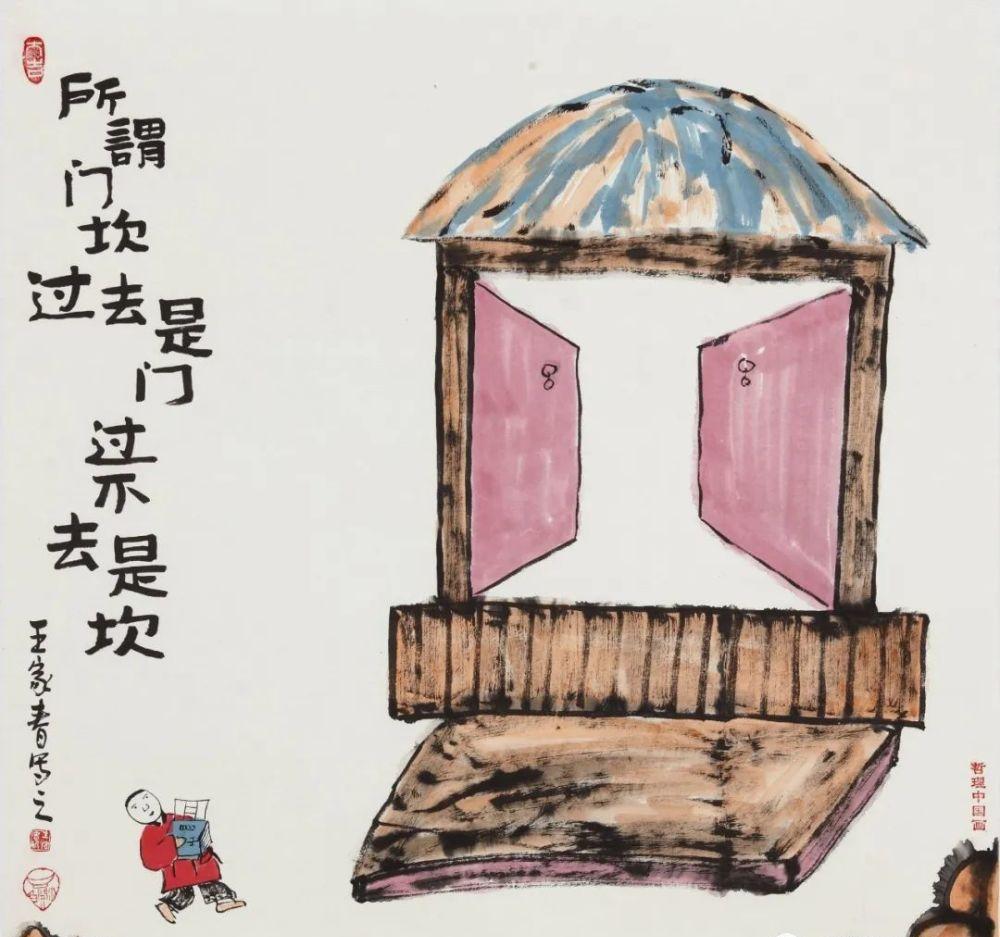 所謂
门坎
过去是
门
过不
去是
坎
王家春写之
哲理中国画